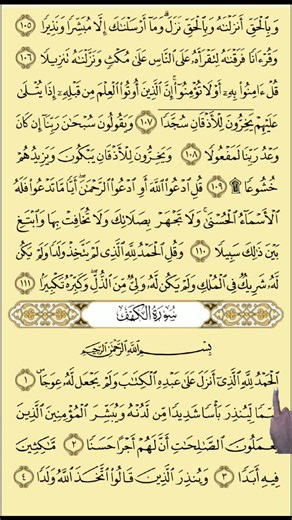 وَبِالْحَقِّ أَنزَلْنَاهُ وَبِالْحَقِّ نَزَلَ ۗ وَمَا أَرْسَلْنَاكَ إِلَّا مُبَشِّرًا وَنَذِيرًا ١٠٥
وَقُرْءَانًا فَرَقْنَاهُ لِتَقْرَأَهُ عَلَى النَّاسِ عَلَىٰ مُكْثٍ وَنَزَّلْنَاهُ تَنزِيلًا ١٠٦
قُلْ ءَامِنُوا بِهِ أَوْ لَا تُؤْمِنُوا ۚ إِنَّ الَّذِينَ أُوتُوا الْعِلْمَ مِن قَبْلِهِ إِذَا يُتْلَىٰ
عَلَيْهِمْ يَخِرُّونَ لِلْأَذْقَانِ سُجَّدًا ١٠٧ وَيَقُولُونَ سُبْحَانَ رَبِّنَا إِن كَانَ
وَعْدُ رَبِّنَا لَمَفْعُولًا ١٠٨ وَيَخِرُّونَ لِلْأَذْقَانِ يَبْكُونَ وَيَزِيدُهُمْ
خُشُوعًا ۩ ١٠٩ قُلِ ادْعُوا اللَّهَ أَوِ ادْعُوا الرَّحْمَٰنَ ۖ أَيًّا مَّا تَدْعُوا فَلَهُ
الْأَسْمَاءُ الْحُسْنَىٰ ۚ وَلَا تَجْهَرْ بِصَلَاتِكَ وَلَا تُخَافِتْ بِهَا وَابْتَغِ
بَيْنَ ذَٰلِكَ سَبِيلًا ١١٠ وَقُلِ الْحَمْدُ لِلَّهِ الَّذِي لَمْ يَتَّخِذْ وَلَدًا وَلَمْ يَكُن
لَّهُ شَرِيكٌ فِي الْمُلْكِ وَلَمْ يَكُن لَّهُ وَلِيٌّ مِّنَ الذُّلِّ ۖ وَكَبِّرْهُ تَكْبِيرًا ١١١
سُورَةُ الْكَهْفِ
بِسْمِ اللَّهِ الرَّحْمَٰنِ الرَّحِيمِ
الْحَمْدُ لِلَّهِ الَّذِي أَنزَلَ عَلَىٰ عَبْدِهِ الْكِتَابَ وَلَمْ يَجْعَل لَّهُ عِوَجًا ١
لِّيُنذِرَ بَأْسًا شَدِيدًا مِّن لَّدُنْهُ وَيُبَشِّرَ الْمُؤْمِنِينَ الَّذِينَ
يَعْمَلُونَ الصَّالِحَاتِ أَنَّ لَهُمْ أَجْرًا حَسَنًا ٢ مَّاكِثِينَ
فِيهِ أَبَدًا ٣ وَيُنذِرَ الَّذِينَ قَالُوا اتَّخَذَ اللَّهُ وَلَدًا ٤